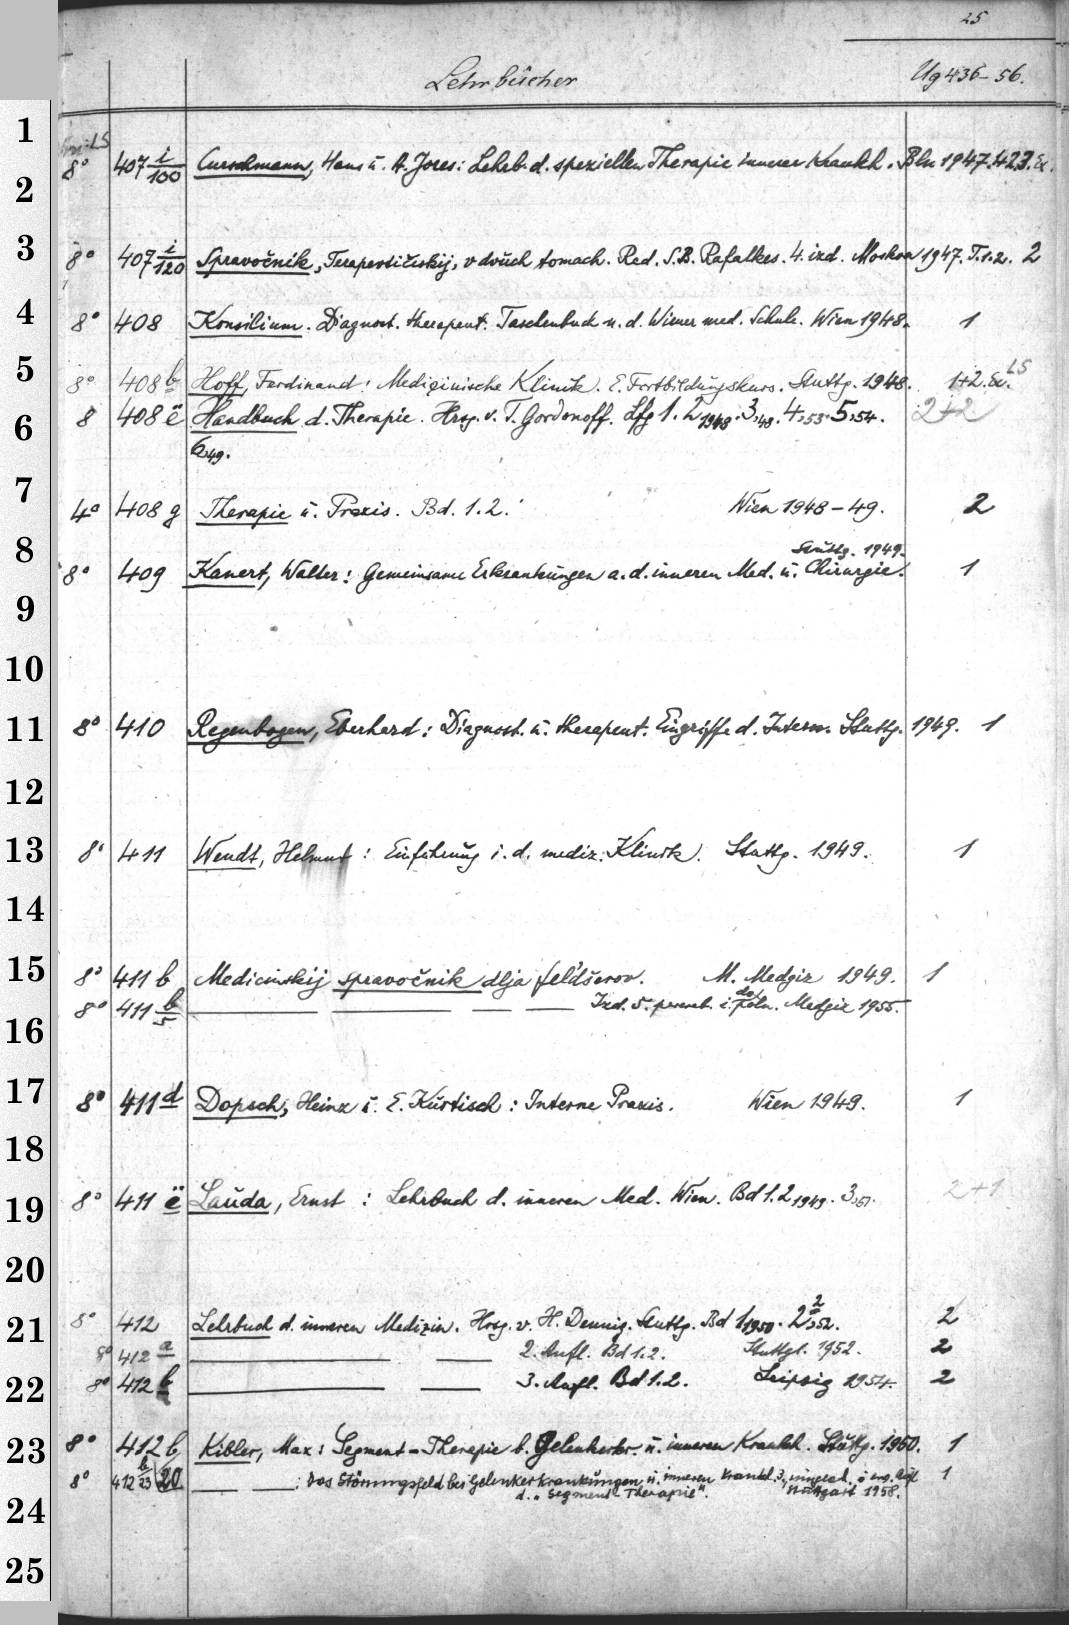 25
Lehrbücher Ug 436-56.
1
LS
8° 407 i/100 Curschmann, Hans u. A. Jores: Lehrb. d. speziellen Therapie innerer Krankh. Bln 1947. 1+2.3. Ex.
2
3 8° 407 i/120 Spravočnik, Terapevtičeskij, v dvuch tomach. Red. S.B. Rafalkes. 4. izd. Moskva 1947. T.1.2. 2
4 8° 408 Konsilium. Diagnost. therapeut. Taschenbuch n. d. Wiener med. Schule. Wien 1948. 1
5 8° 408 b Hoff, Ferdinand: Medizinische Klinik. E. Fortbildungskurs. Stuttg. 1948. 1+2. Ex. LS
6 8 408 ë Handbuch d. Therapie. Hrsg. v. T. Gordonoff. Lfg 1. 2 1948. 3,48. 4,53. 5,54. 2+2
6,49.
7 4° 408 g Therapie u. Praxis. Bd. 1.2. Wien 1948-49. 2
8 Stuttg. 1949.
8° 409 Kanert, Walter: Gemeinsame Erkrankungen a. d. inneren Med. u. Chirurgie. 1
9
10
11 8° 410 Regenbogen, Eberhard: Diagnost. u. therapeut. Eingriffe d. Intern. Stuttg. 1949. 1
12
13 8° 411 Wendt, Helmut: Einführung i. d. mediz. Klinik. Stuttg. 1949. 1
14
15 8° 411 b Medicinskij spravočnik dlja fel'dšerov. M. Medgiz 1949. 1
8° 411 b/5 — — — — Izd. 5. pererab. i dopoln. Medgiz 1955.
16
17 8° 411 d Dopsch, Heinz u. E. Kürtisch: Interne Praxis. Wien 1949. 1
18
19 8° 411 ë Lauda, Ernst: Lehrbuch d. inneren Med. Wien. Bd 1.2 1949. 3,51. 2+1
20
21 8° 412 Lehrbuch d. inneren Medizin. Hrsg. v. H. Dennig. Stuttg. Bd 1 1950. 2 2,52. 2
8° 412 a — — 2. Aufl. Bd 1.2. Stuttgt. 1952. 2
22 8° 412 b — — 3. Aufl. Bd 1.2. Leipzig 1954. 2
23 8° 412 b Kibler, Max: Segment-Therapie b. Gelenkerkr. u. inneren Krankh. Stuttg. 1950. 1
8° 412 b/23 20 — —: Das Störungsfeld bei Gelenkerkrankungen u. inneren Krankh. 3., umgearb. u. erg. Aufl. 1
24 d. "Segment-Therapie". Stuttgart 1958.
25